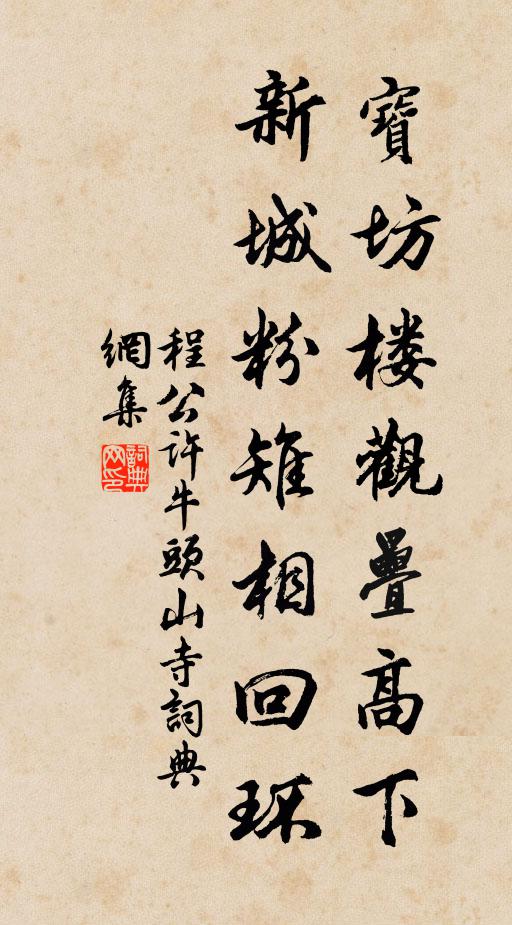 寶坊楼觀疊高下
新城粉雉相回环
程公许牛頭山寺詞典
網集
詞典网印